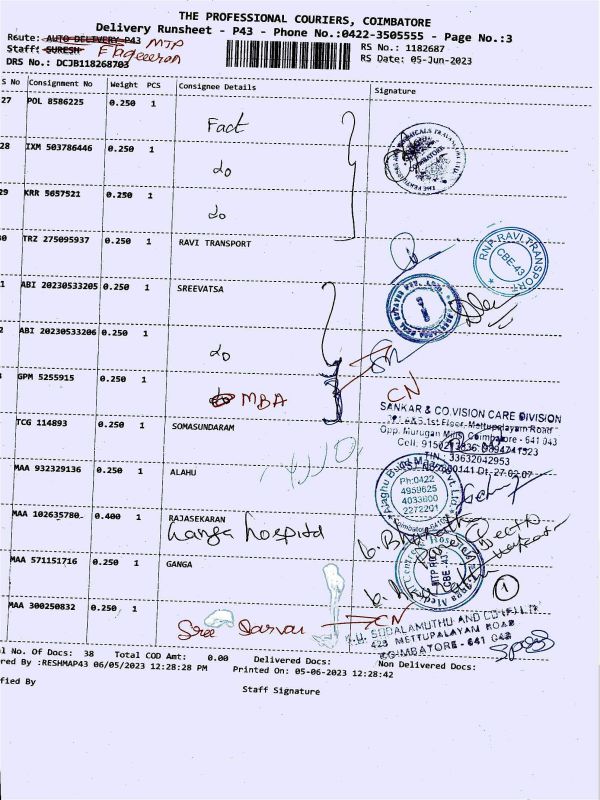 THE PROFESSIONAL COURIERS, COIMBATORE
Delivery Runsheet - P43 - Phone No.:0422-3505555 - Page No.:3
Route: AUTO DELIVERY P43 MTP
Staff: SURESH
RS No.: 1182687
DRS No.: DCJB118268703
RS Date: 05-Jun-2023
S No Consignment No Weight PCS Consignee Details Signature
27 POL 8586225 0.250 1 Fact
28 IXM 503786446 0.250 1 do
29 KRR 5657521 0.250 1 do
30 TRZ 275095937 0.250 1 RAVI TRANSPORT
RNP-RAVI TRANSPORT
CBE-43
1 ABI 20230533205 0.250 1 SREEVATSA
2 ABI 20230533206 0.250 1 do
GPM 5255915 0.250 1 MBA
CN
SANKAR & CO.VISION CARE DIVISION
1st Floor, Mettupalayam Road
Opp. Murugan Mills, Coimbatore - 641 043
TCG 114893 0.250 1 SOMASUNDARAM
TIN : 33632042953
Dt. 27.02.07
MAA 932329136 0.250 1 ALAHU
Ph:0422
4959625
4033600
2272201
MAA 102635780 0.400 1 RAJASEKARAN
Ganga hospital
MAA 571151716 0.250 1 GANGA
MAA 300250832 0.250 1 Sree
CN
SUDALAMUTHU AND CO
423 METTUPALAYAM ROAD
COIMBATORE - 641 043
1
l No. Of Docs: 38 Total COD Amt: 0.00 Delivered Docs: Non Delivered Docs:
red By :RESHMAP43 06/05/2023 12:28:28 PM Printed On: 05-06-2023 12:28:42
ified By Staff Signature